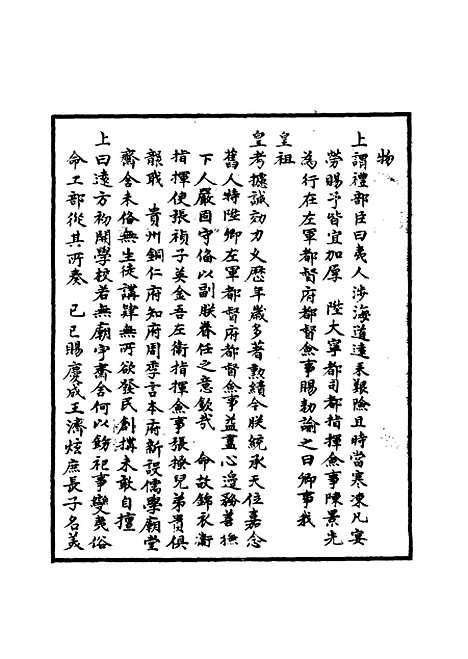 物
上謂禮部臣曰夷人涉海道遠來艱險且時當寒凍凡宴
勞賜予皆宜加厚　陞大寧都司都指揮僉事陳景先
為行在左軍都督府都督僉事賜勑諭之曰卿事我
皇祖
皇考攄誠効力久歷年歲多著勲績今朕統承天位嘉念
舊人特陞卿左軍都督府都督僉事益盡心邊務善撫
下人嚴固守俻以副朕眷任之意欽哉　命故錦衣衞
指揮使張禎子英金吾左衞指揮僉事張接兄弟貴俱
襲職　貴州銅仁府知府周季言本府新設儒學廟堂
齋舍未俻無生徒講肄無所欲發民創搆未敢自擅
上曰遠方初開學校若無廟宇齋舍何以飭祀事變夷俗
命工部從其所奏　己巳賜慶成王濟炫庶長子名美